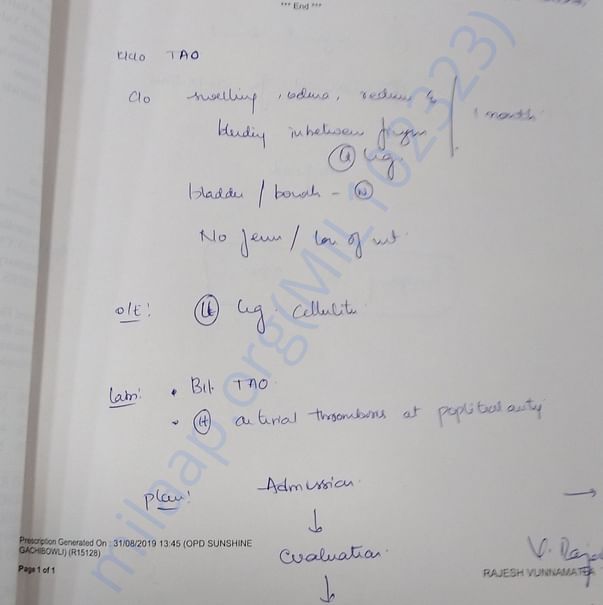 *** End ***
K/c/o TAO
c/o swelling, edema, redness &
bleeding inbetween fingers / 1 month
Lt leg.
bladder / bowels - N
No fever / loss of wt.
o/E: Lt leg. Cellulitis
Labs: • B/L TAO
• Lt arterial thrombosis at popliteal artery
plan: Admission
↓
Evaluation
↓
Prescription Generated On : 31/08/2019 13:45 (OPD SUNSHINE
GACHIBOWLI) (R15128)
Page 1 of 1
RAJESH VUNNAMATLA
milaap.org(MIL1022323)